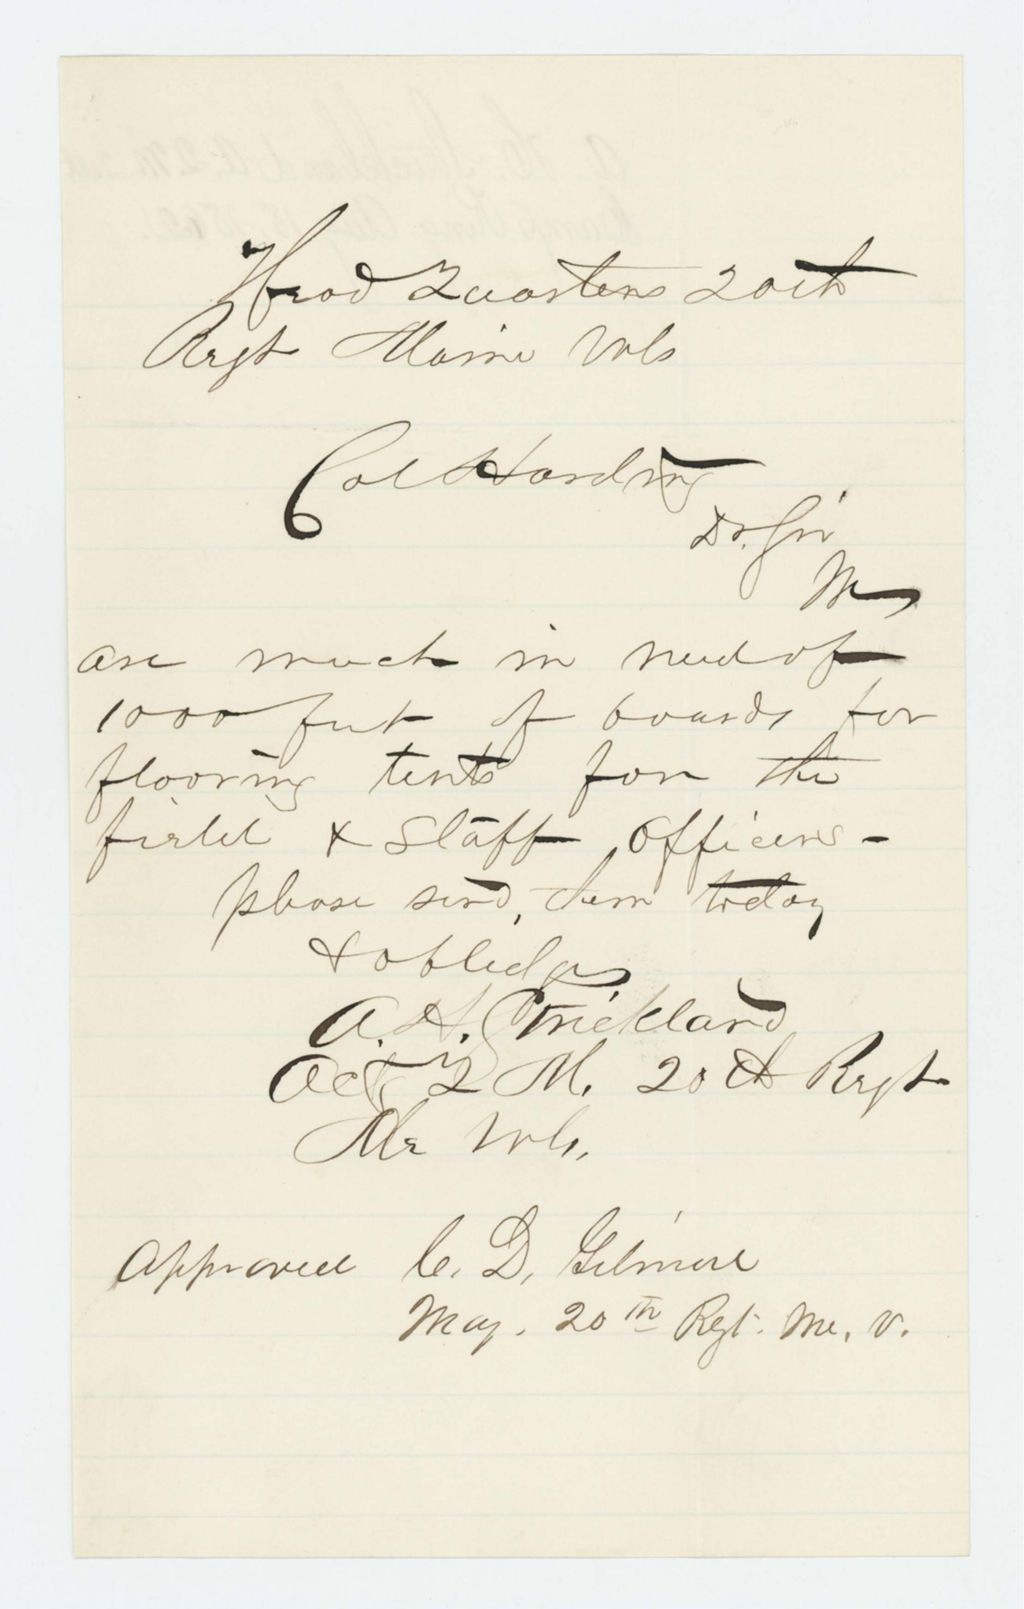 Head Quarters 20th
Regt Maine Vols
Col Harding
Dr. Sir
We
are much in need of
1000 feet of boards for
flooring tents for the
field & Staff officers -
please send, them today
& obledge
A. H. Strickland
Act Q M. 20th Regt
Me Vols.
Approved C. D. Gilmore
Maj. 20th Regt. Me. V.